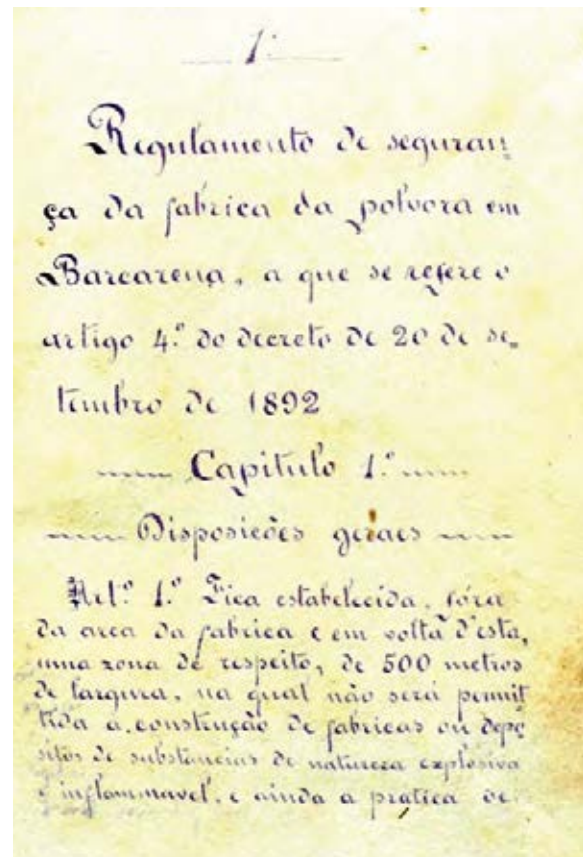 1.
Regulamento de seguran-
ça da fabrica da polvora em
Barcarena, a que se refere o
artigo 4.º do decreto de 20 de se-
tembro de 1892
Capitulo 1.º
Disposições geraes
Art.º 1.º Fica estabelecida, fóra
da area da fabrica e em volta d'esta,
uma zona de respeito, de 500 metros
de largura, na qual não será permit
tida a construcção de fabricas ou depo
sitos de substancias de natureza explosiva
e inflammavel, e ainda a pratica de